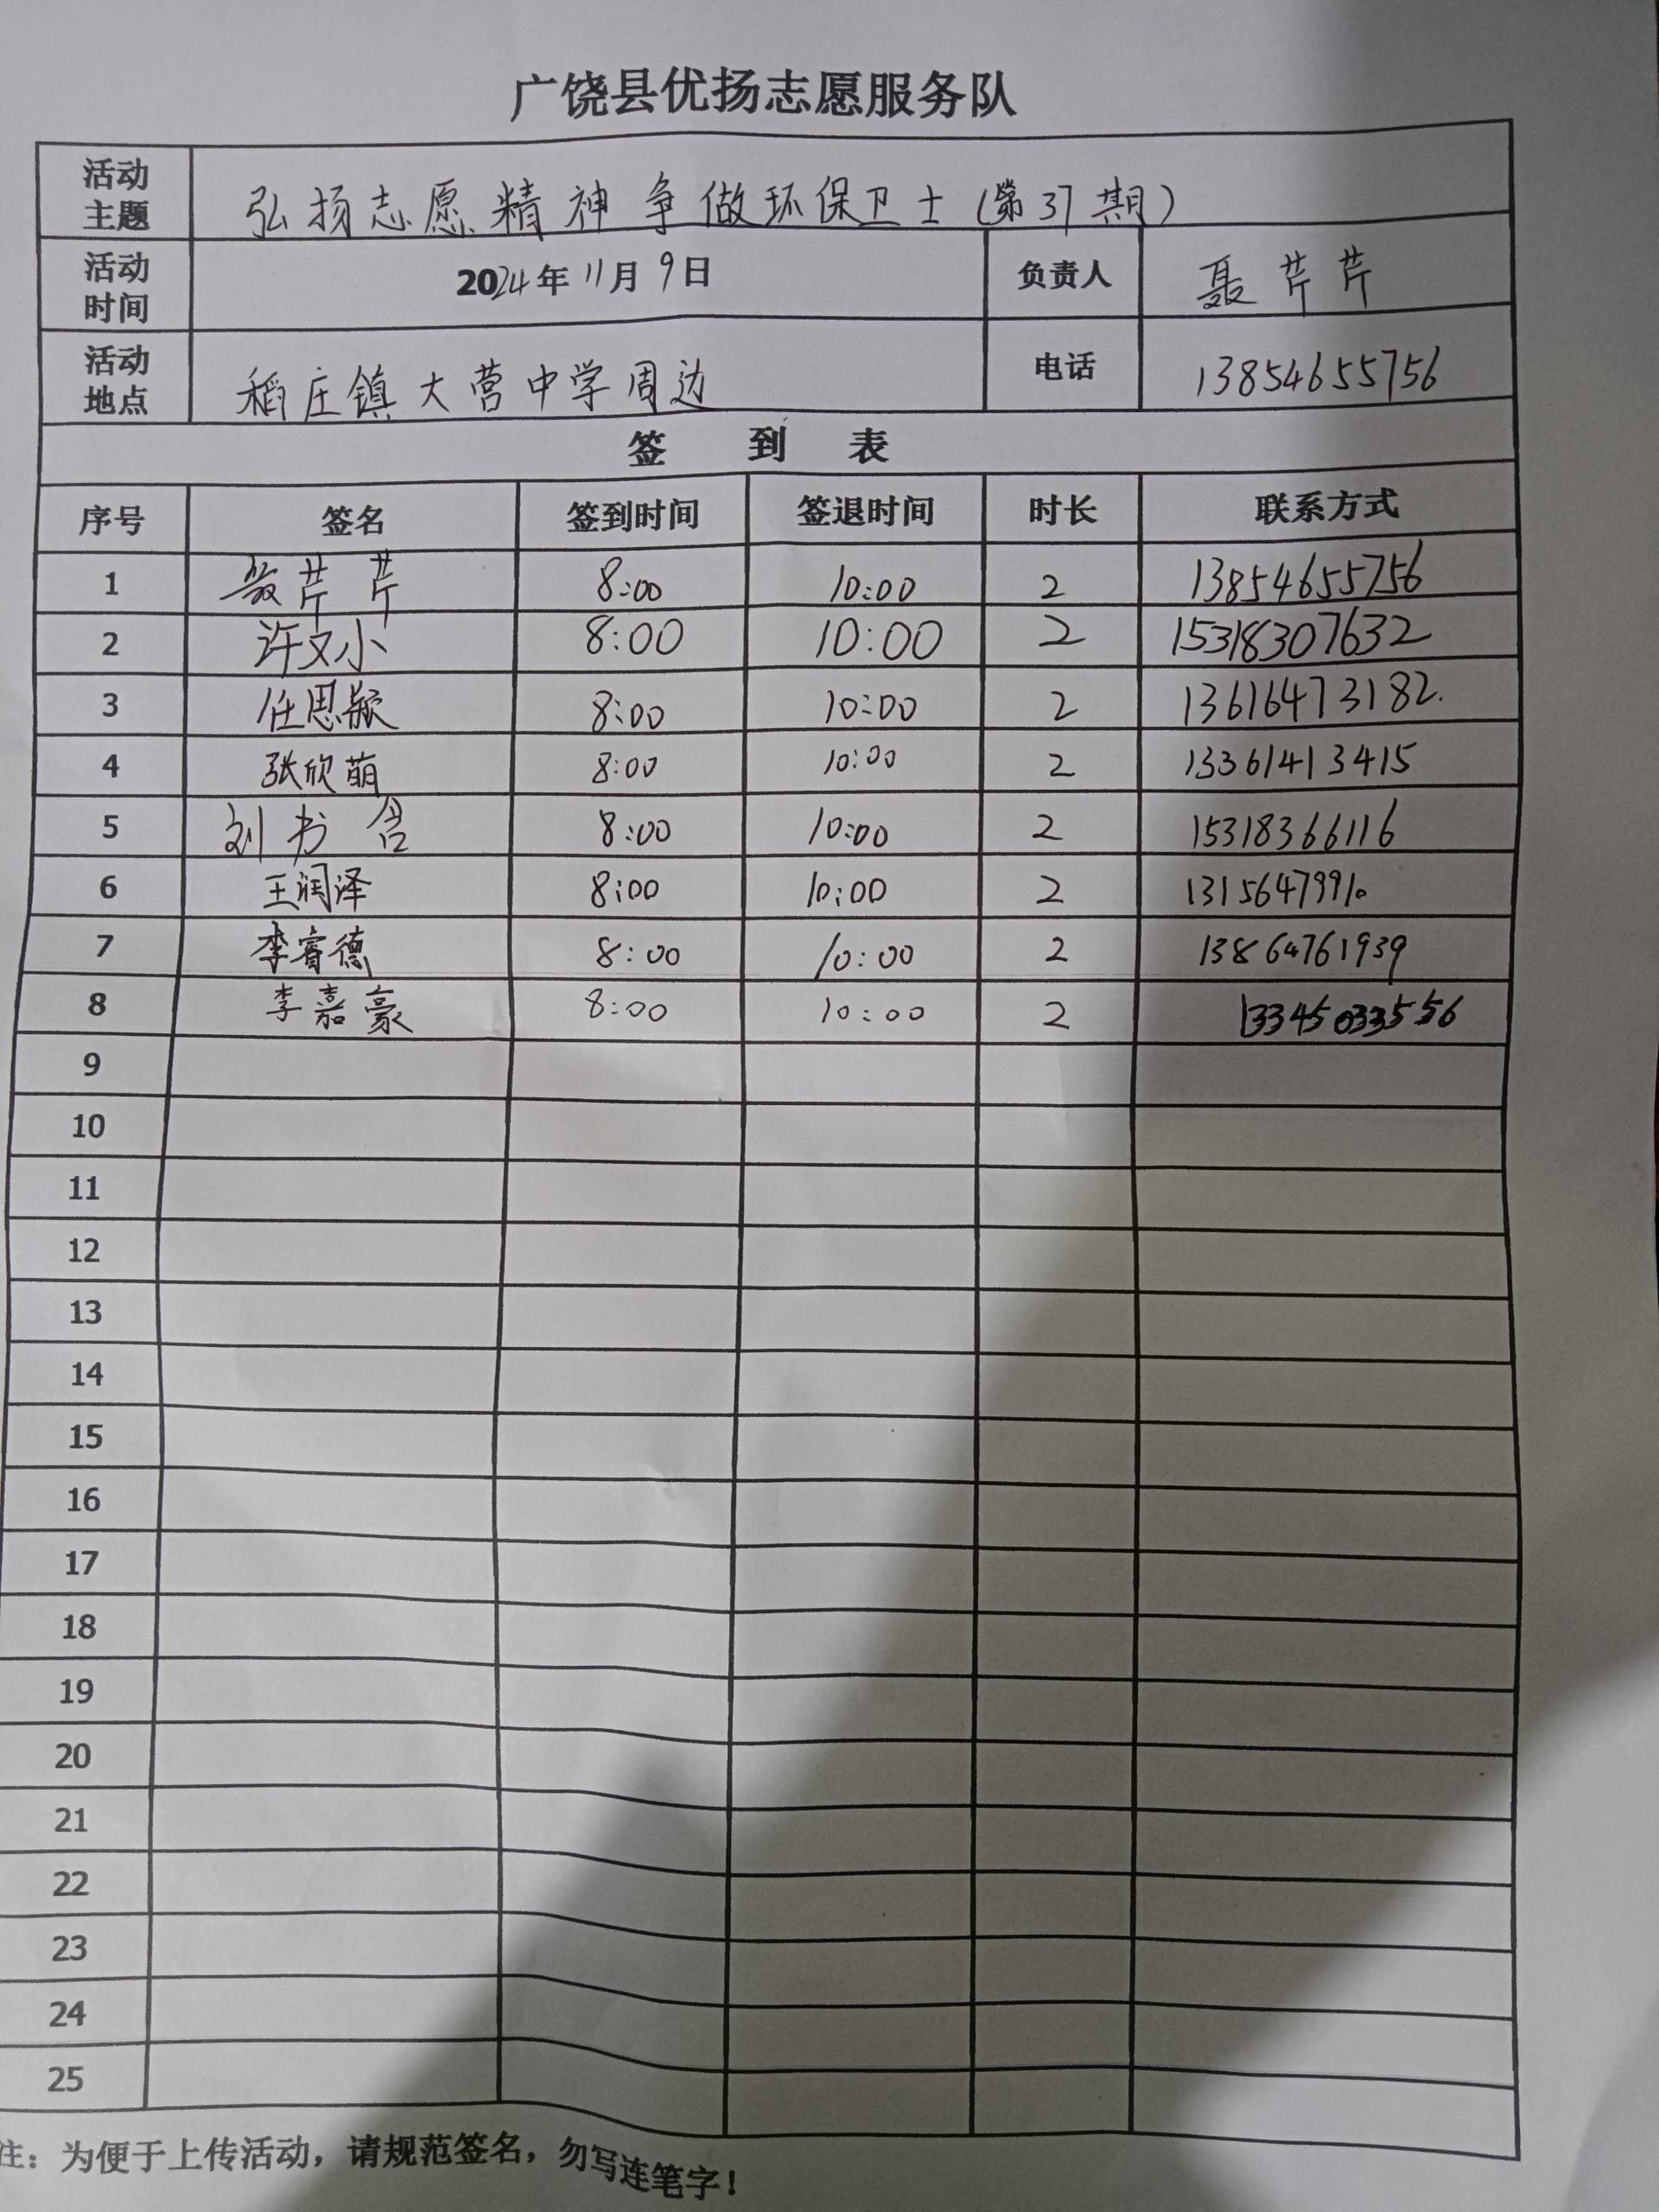 广饶县优扬志愿服务队
活动主题 弘扬志愿精神争做环保卫士(第37期)
活动时间 2024年11月9日 负责人 聂芹芹
活动地点 稻庄镇大营中学周边 电话 13854655756
签 到 表
序号 签名 签到时间 签退时间 时长 联系方式
1 聂芹芹 8:00 10:00 2 13854655756
2 许文小 8:00 10:00 2 15318307632
3 任思颖 8:00 10:00 2 13616473182.
4 张欣萌 8:00 10:00 2 13361413415
5 刘书含 8:00 10:00 2 15318366116
6 王润泽 8:00 10:00 2 13156479910
7 李睿德 8:00 10:00 2 13864761939
8 李嘉豪 8:00 10:00 2
9
10
11
12
13
14
15
16
17
18
19
20
21
22
23
24
25
注：为便于上传活动，请规范签名，勿写连笔字！